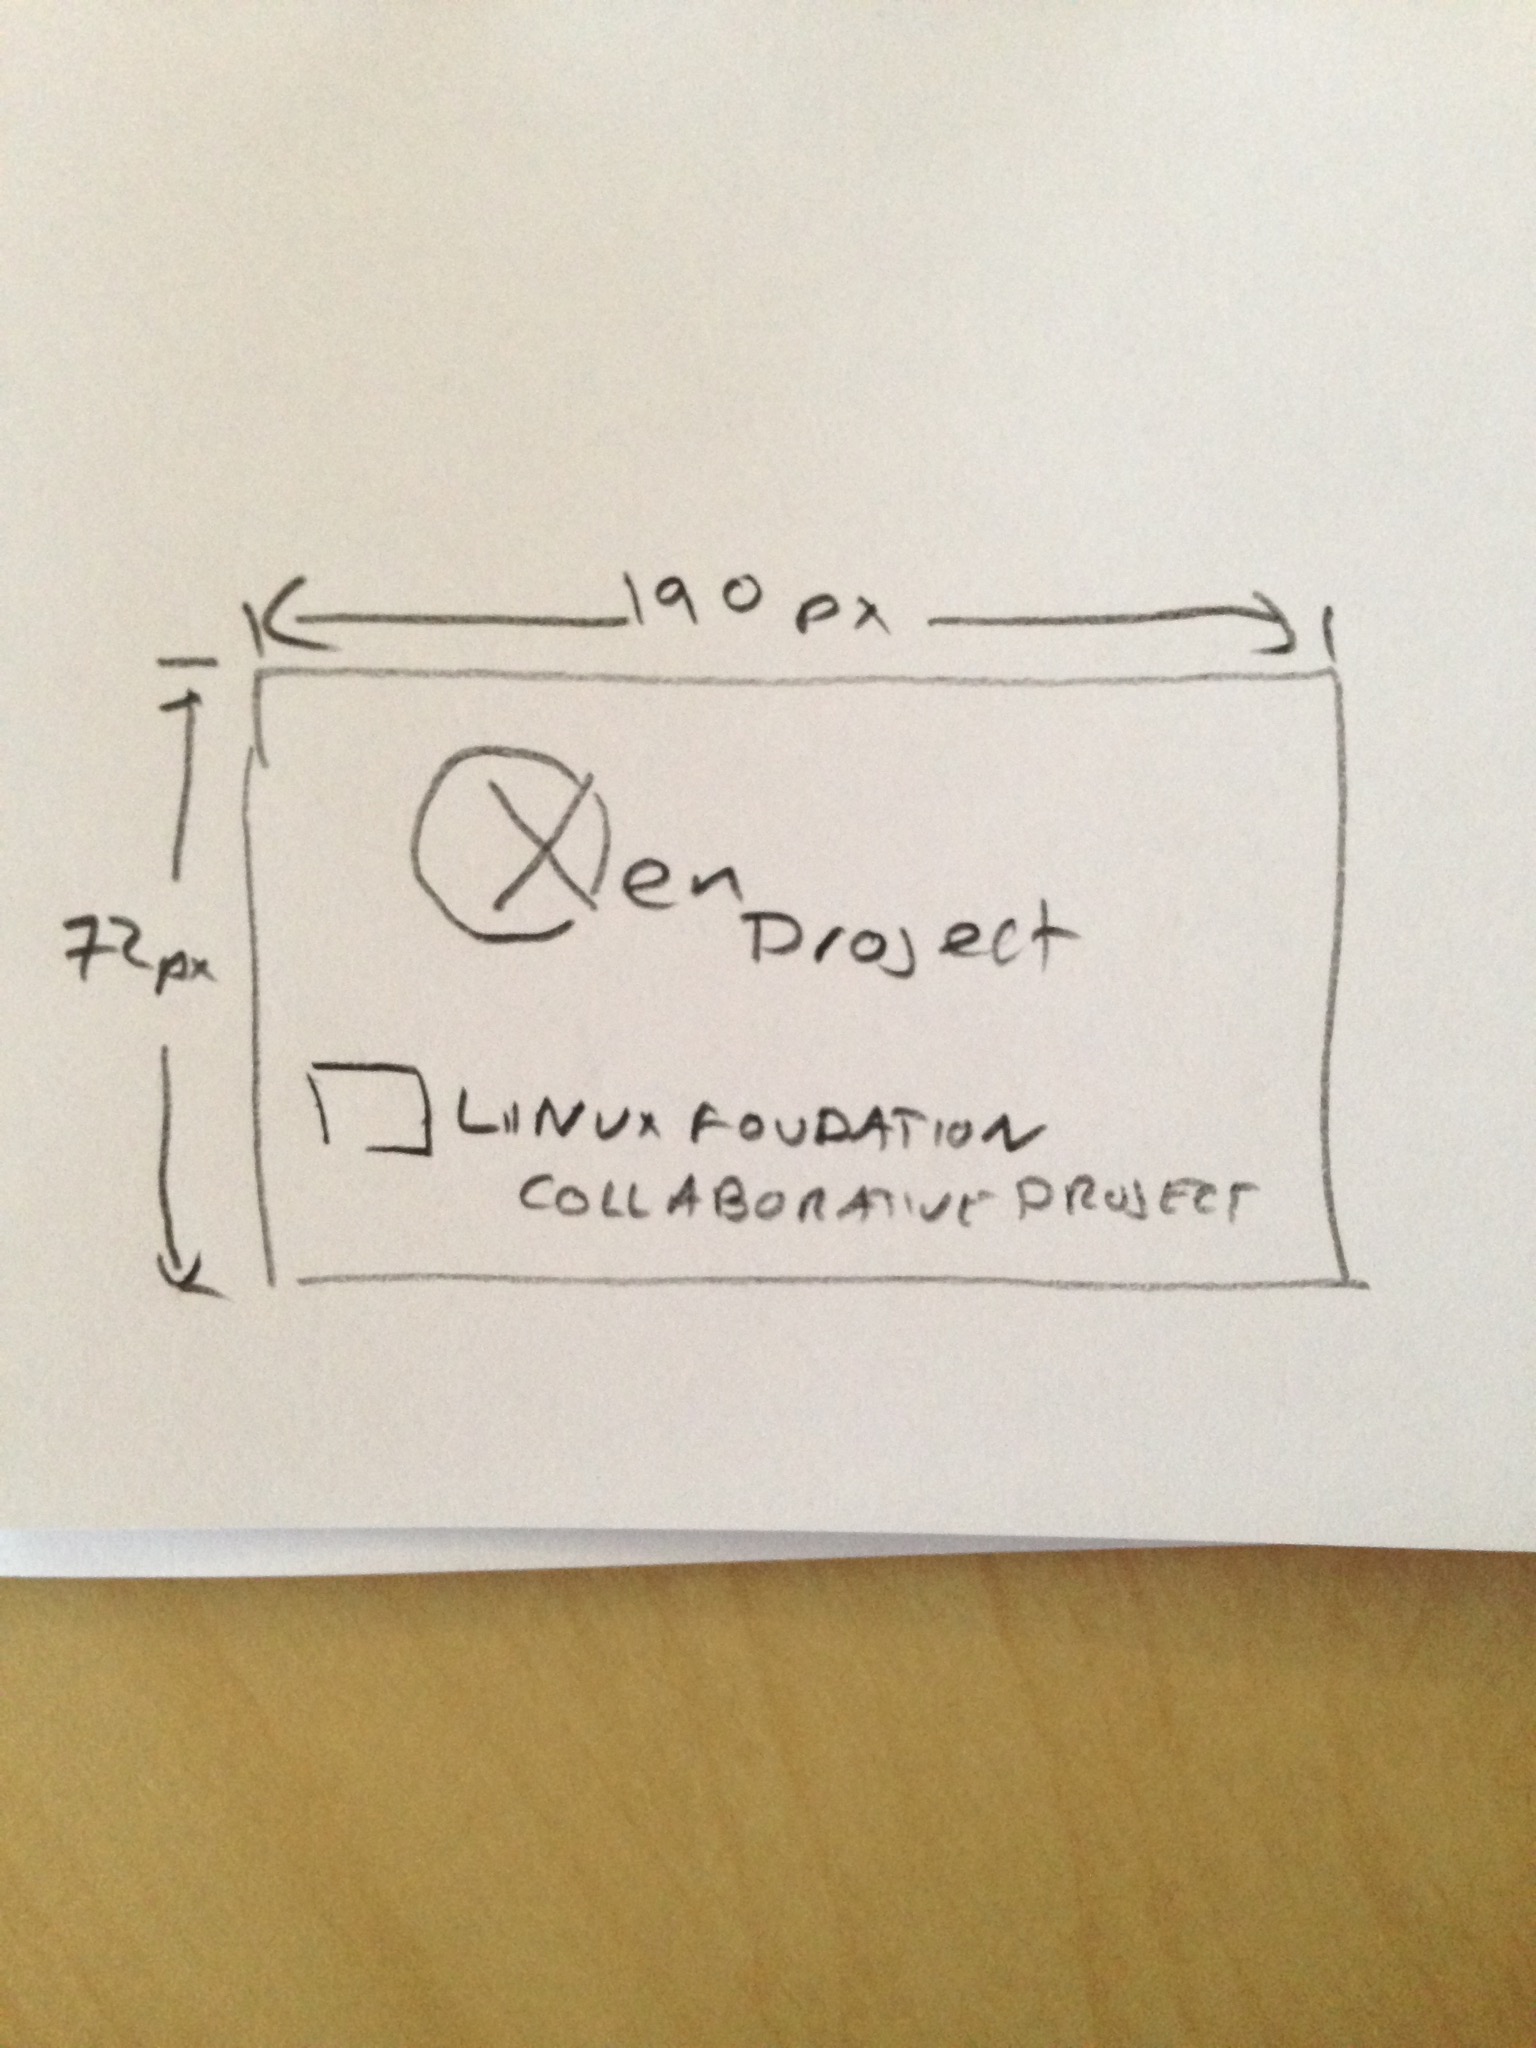 190 px
72px
Xen
Project
LINUX FOUDATION
COLLABORATIVE PROJECT